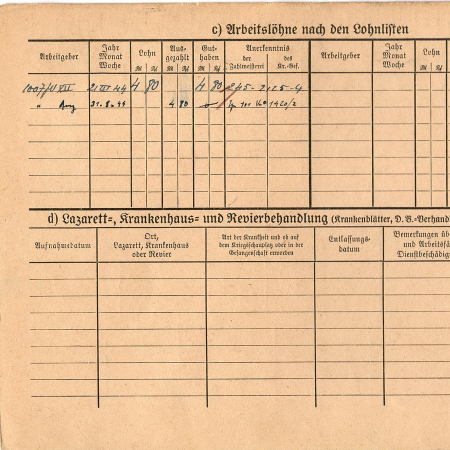 c) Arbeitslöhne nach den Lohnlisten
Arbeitgeber Jahr Monat Woche Lohn Aus- gezahlt Gut- haben Anerkenntnis der Zahlmeisterei des Kr.-Gef. Arbeitgeber Jahr Monat Woche Lohn
ℛℳ ℛ₰ ℛℳ ℛ₰ ℛℳ ℛ₰ ℛℳ ℛ₰
VIII 44 4 80 4 80
" Aug 31.8.44 4 80
d) Lazarett-, Krankenhaus- und Revierbehandlung (Krankenblätter, D. B.-Verhand
Aufnahmedatum Ort, Lazarett, Krankenhaus oder Revier Art der Krankheit und ob auf dem Kriegsschauplatz oder in der Gefangenschaft erworben Entlassungs- datum Bemerkungen üb und Arbeitsfä Dienstbeschädig